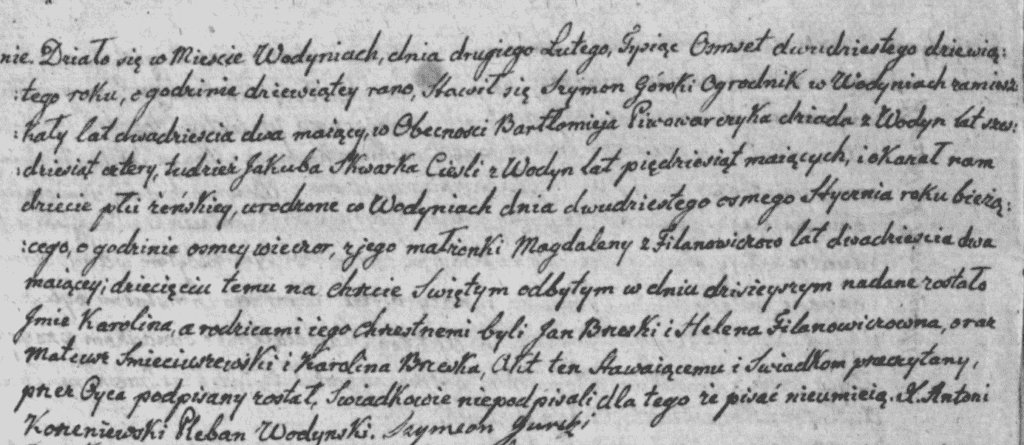 nie. Działo się w Mieście Wodyniach, dnia drugiego Lutego, Tysiąc Osmset dwudziestego dziewią:
:tego roku, o godzinie dziewiątey rano, Stawił się Szymon Górski Ogrodnik w Wodyniach zamiesz:
:kały lat dwadzieścia dwa maiący, w Obecności Bartłomieja Piwowarczyka dziada z Wodyn lat sześ:
:dziesiąt cztery, tudzież Jakuba Skwarka Cieśli z Wodyn lat pięćdziesiąt maiących, i okazał nam
dziecie płci żeńskiey, urodzone w Wodyniach dnia dwudziestego osmego Stycznia roku bieżą:
:cego, o godzinie osmey wieczor, z jego małżonki Magdaleny z Filanowiczów lat dwadzieścia dwa
maiącey; dziecięciu temu na chrzcie Świętym odbytym w dniu dzisieyszym nadane zostało
Jmie Karolina, a rodzicami iego chrzestnemi byli Jan Brzeski i Helena Filanowiczowna, oraz
Mateusz Smieciuszewski i Karolina Brzeska, Akt ten Stawaiącemu i Świadkom przeczytany,
przez Oyca podpisany został, Świadkowie niepodpisali dla tego że pisać nieumieią. X. Antoni
Korzeniewski Pleban Wodynski. Szymon Gurski